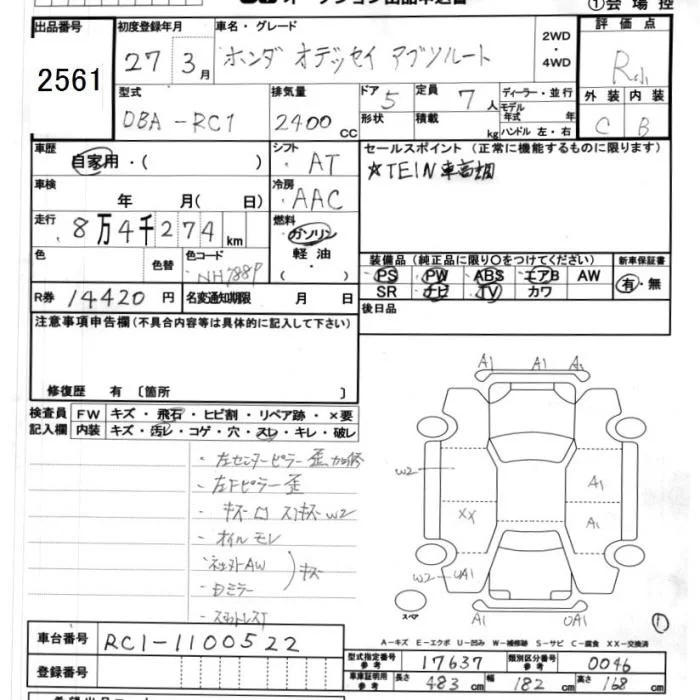 ①会場控
出品番号
2561
初度登録年月
27 3月
車名・グレード
ホンダ オデッセイ アブソルート
2WD
・
4WD
評価点
R
外装 内装
C B
型式
DBA-RC1
排気量
2400cc
ドア 5
形状
定員 7人
積載 kg
ディーラー・並行
モデル年式 年
ハンドル 左・右
車歴
自家用・( )
シフト
AT
セールスポイント (正常に機能するものに限ります)
☆TEIN車高調
車検
年 月( 日)
冷房
AAC
走行
8万4千274km
燃料
ガソリン
軽油・
( )
色
色替
色コード
NH788P
装備品 (純正品に限り○をつけてください)
PS PW ABS エアB AW
SR ナビ TV カワ
新車保証書
有・無
R券 14420円
名変通知期限 月 日
後日品
注意事項申告欄(不具合内容等は具体的に記入して下さい)
修復歴 有 〔箇所 〕
検査員
記入欄
FW キズ・飛石・ヒビ割・リペア跡・×要
内装 キズ・汚レ・コゲ・穴・スレ・キレ・破レ
・左センターピラー歪、加修
・左Fピラー歪
・オイルモレ
A1 A1 A1
W2
A1
XX
A1
W2 UA1
スペア
A1 UA1
①
A-キズ E-エクボ U-凹み W-補修跡 S-サビ C-腐食 XX-交換済
車台番号
RC1-1100522
登録番号
型式指定番号
参考
17637
類別区分番号
参考
0046
車庫証明用
参考
長さ 483cm
幅 182cm
高さ 168cm